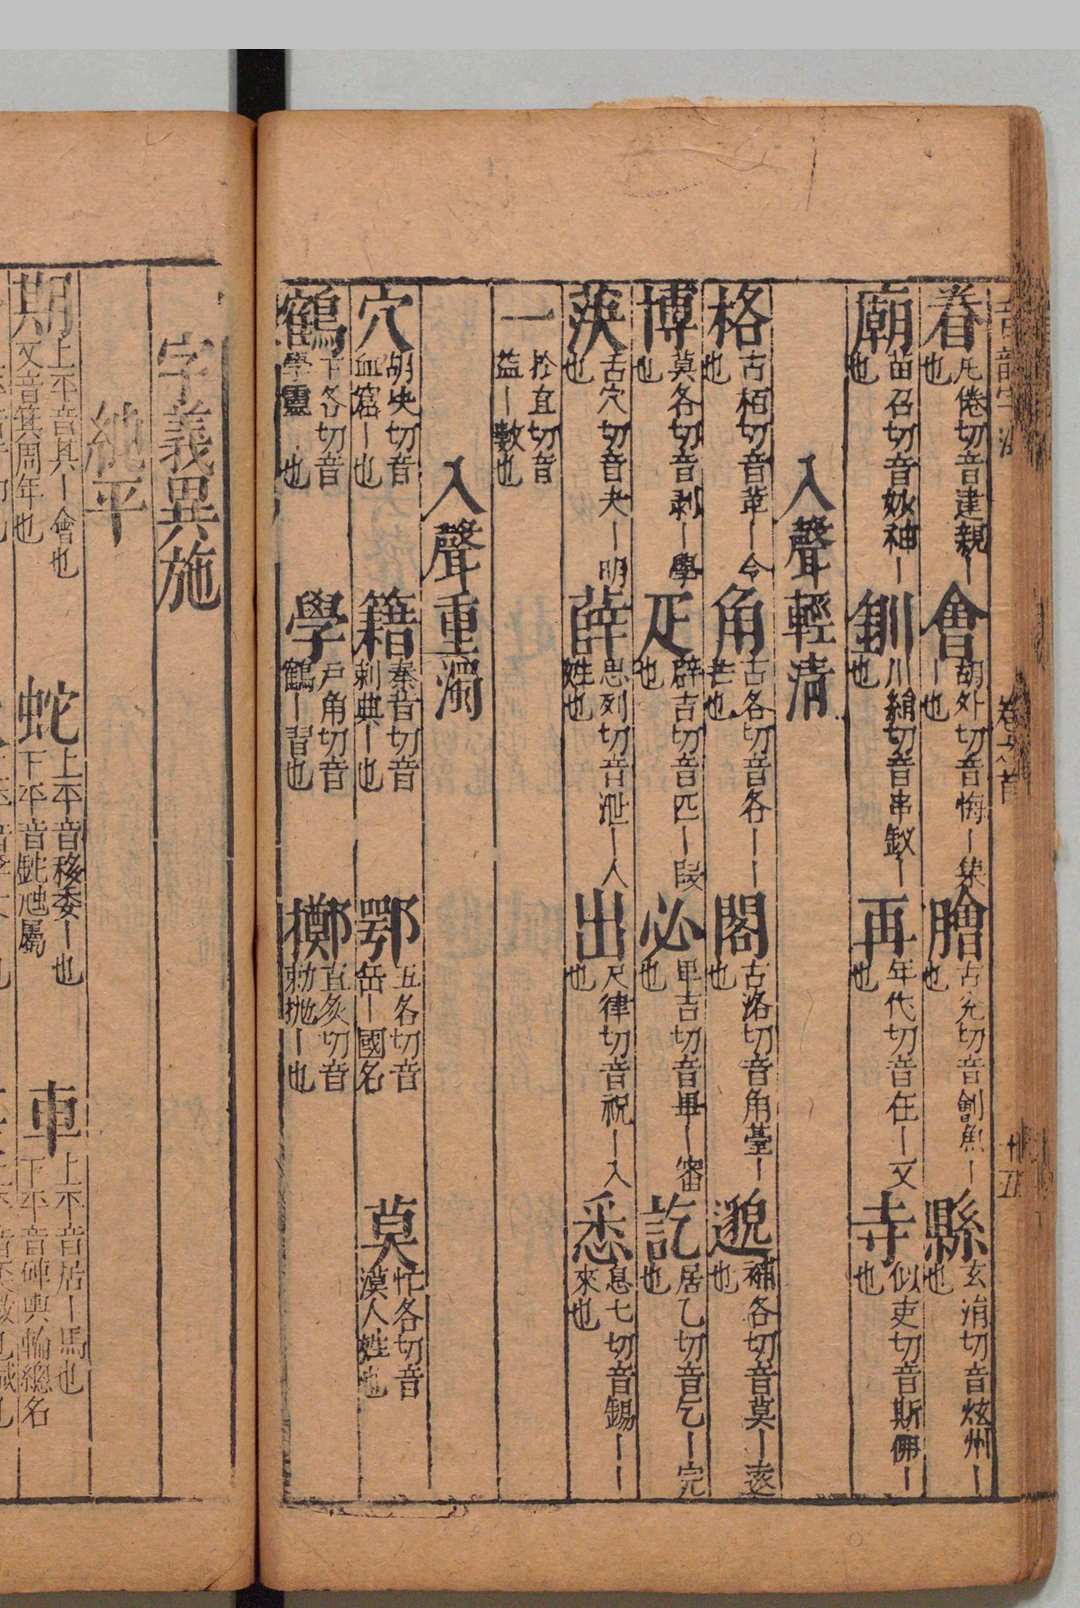 眷凡倦切音建親ー也 會胡外切音悔ー集ー也 膾古兊切音劊魚ー也 縣玄涓切音炫州ー也
廟苗召切音妙神ー也 釧川絹切音串釵ー也 再年代切音在ー又也 寺似吏切音斯佛ー也
入聲輕清
格古栢切音革ー令也 角古各切音各ーー芒也 閣古洛切音角臺ー也 邈補各切音莫ー遠也
博莫各切音剥ー學也 疋辟吉切音匹ー段也 必畢吉切音畢ー審也 訖居乙切音乞ー完也
莢古穴切音夬ー明也 薛思列切音泄ー人姓也 出尺律切音祝ー入也 悉息七切音錫ーー來也
一於宜切音益ー數也
入聲重濁
穴胡决切音血窟ー也 籍秦昔切音剌典ー也 鄂五各切音岳ー國名 莫忙各切音漠人姓也
鶴下各切音學靈也 學戶角切音鶴ー習也 擲直炙切音勅抛ー也
字義異施
純平
期上平音具ー會也又音箕周年也 蛇上平音移委ー也下平音虵虺屬 車上平音居ー馬也下平音硨輿輪總名